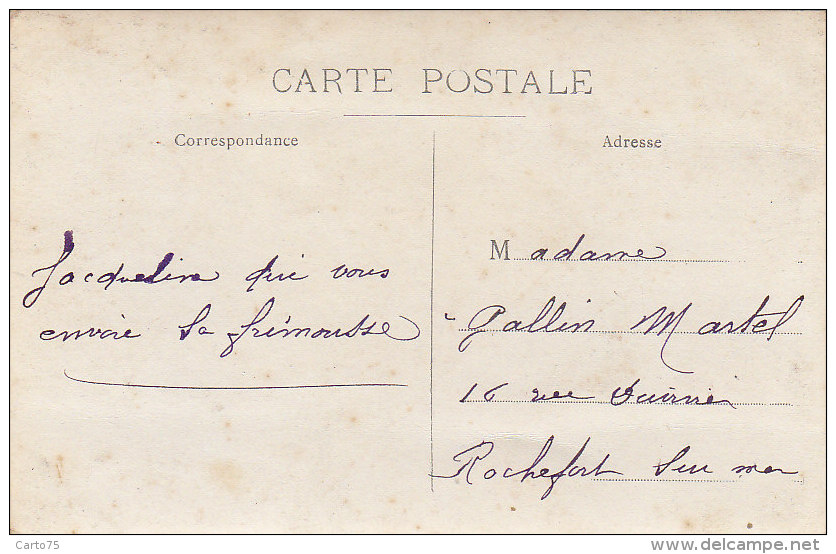 CARTE POSTALE
Correspondance
Adresse
Jacqueline qui vous
envoie sa frimousse
Madame
Gallin Martel
16 rue
Rochefort sur mer
Carto75
delcampe.net